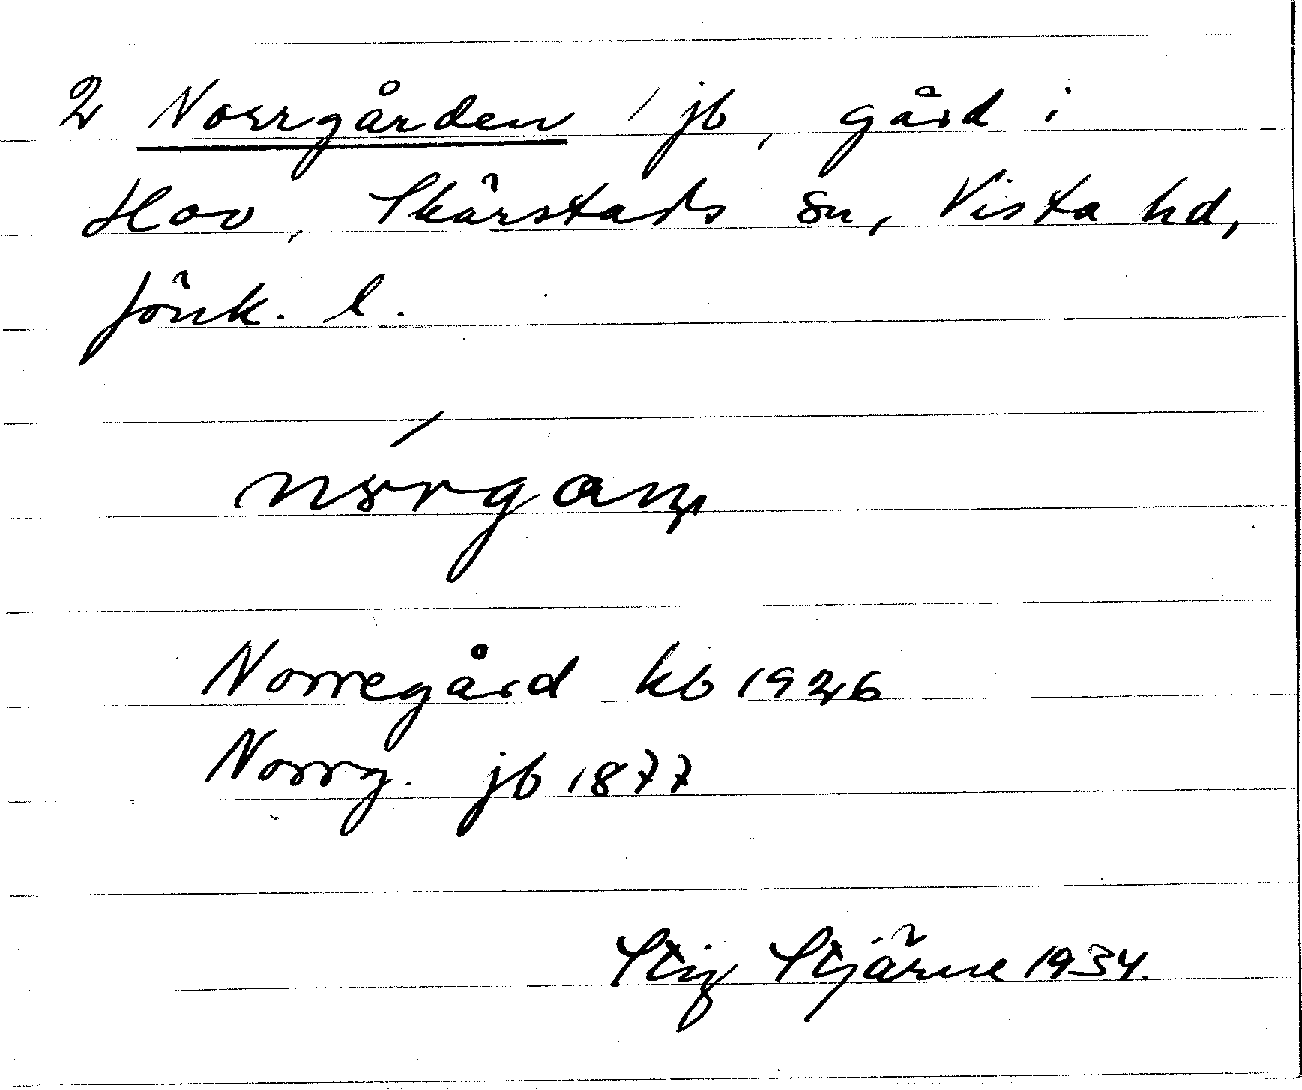 2 Norrgården 'jb, gård i
Hov, Skärstads sn, Vista hd,
Jönk. l.
Norregård kb 1926
Norrg. jb 1877
Stig Stjärne 1934.